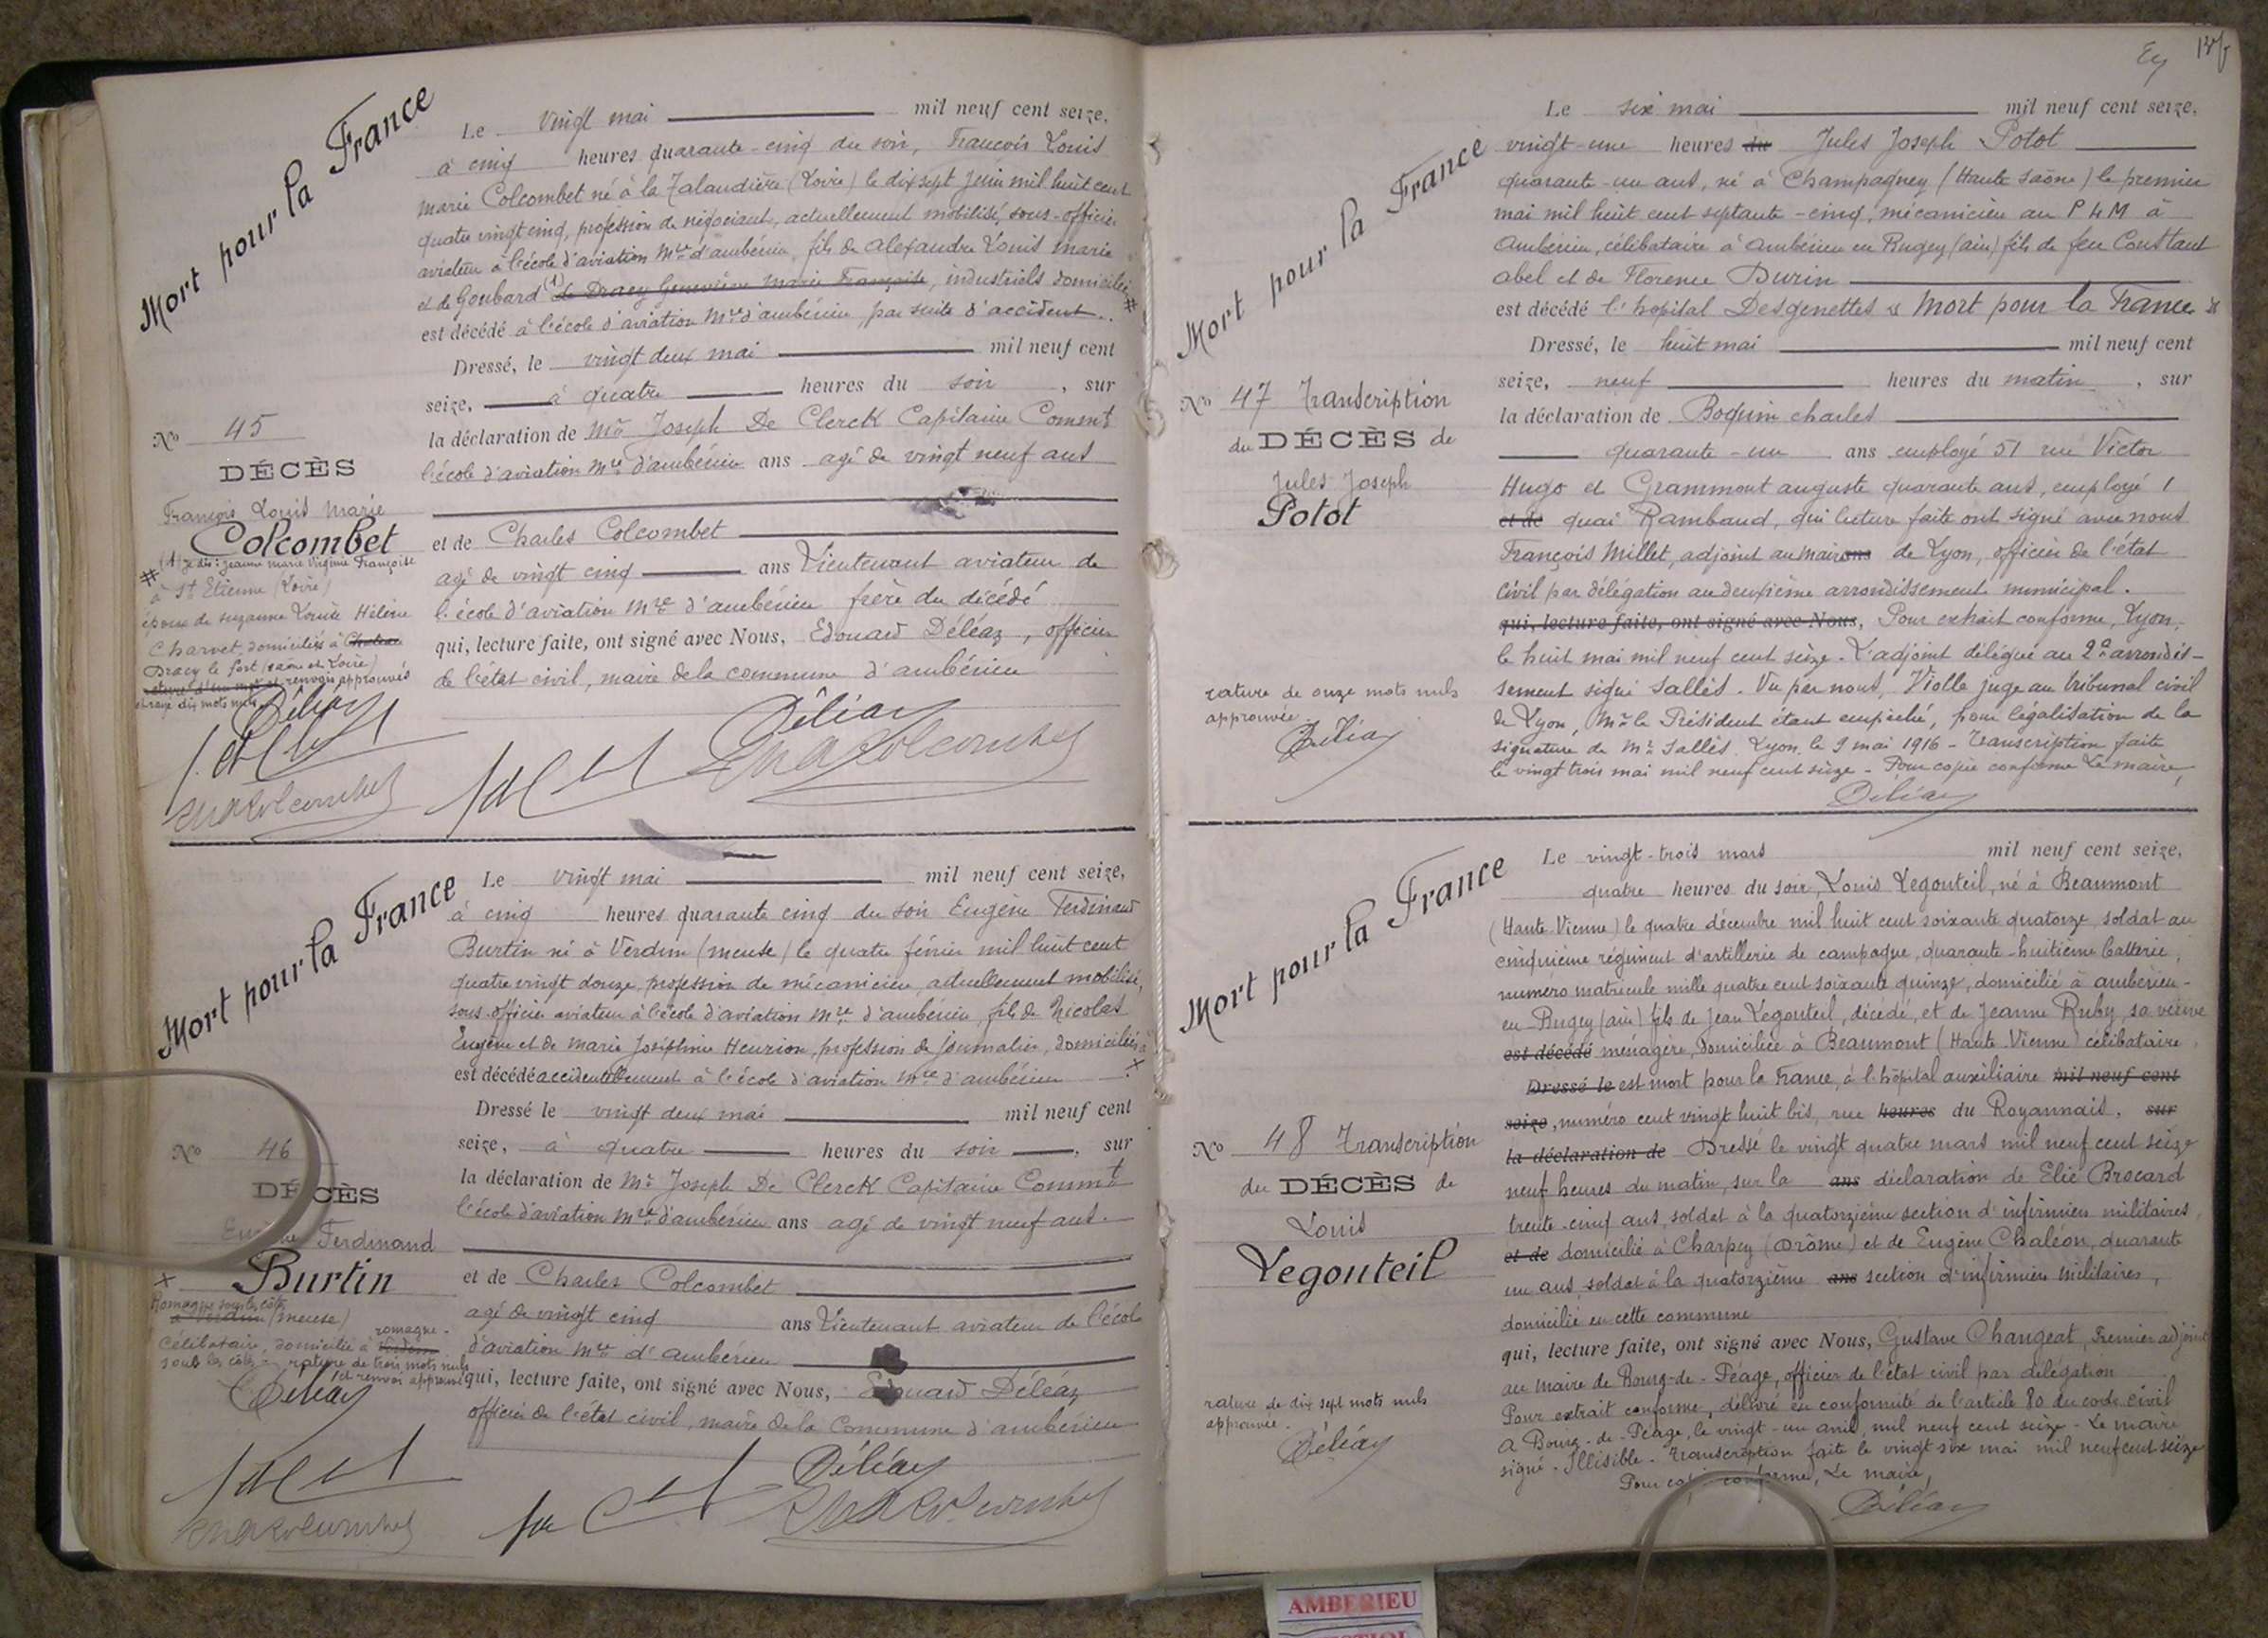 Mort pour la France
Le vingt mai mil neuf cent seize,
à cinq heures quarante-cinq du soir, François Louis
Marie Colcombet né à la Talaudière (Loire) le dix sept Juin mil huit cent
quatre vingt cinq, profession de négociant, actuellement mobilisé, sous-officier
aviateur à l'école d'aviation Mre d'ambérieu, fils de Alexandre Louis Marie
et de Goubard (1) de Dracy Geneviève Marie Françoise, industriels domiciliés #
est décédé à l'école d'aviation Mre d'ambérieu par suite d'accident.
Dressé, le vingt deux mai mil neuf cent
seize, à quatre heures du soir, sur
la déclaration de Mr Joseph De Clerck Capitaine Commt
l'école d'aviation Mre d'ambérieu ans agé de vingt neuf ans
et de Charles Colcombet
agé de vingt cinq ans Lieutenant aviateur de
l'école d'aviation Mre d'ambérieu frère du décédé
qui, lecture faite, ont signé avec Nous, Edouard Déléaz, officier
de l'état civil, maire de la commune d'ambérieu
No 45
DÉCÈS
François Louis Marie
Colcombet
(1) Jeanne Marie Virginie Françoise
# à St Etienne (Loire)
époux de Suzanne Louise Hélène
Charvet, domiciliés à Chateau
Dracy le fort (Saône et Loire)
renvois approuvés
et rayé dix mots nuls
Déléaz
Déléaz
Mort pour la France
Le vingt mai mil neuf cent seize,
à cinq heures quarante cinq du soir Eugène Ferdinand
Burtin né à Verdun (Meuse) le quatre février mil huit cent
quatre vingt douze, profession de mécanicien, actuellement mobilisé,
sous-officier aviateur à l'école d'aviation Mre d'ambérieu, fils de Nicolas
Eugène et de Marie Joséphine Henrion, profession de journalier, domiciliés à
est décédé accidentellement à l'école d'aviation Mre d'ambérieu X
Dressé le vingt deux mai mil neuf cent
seize, à quatre heures du soir, sur
la déclaration de Mr Joseph De Clerck Capitaine Commt
l'école d'aviation Mre d'ambérieu ans agé de vingt neuf ans.
et de Charles Colcombet
agé de vingt cinq ans Lieutenant aviateur de l'école
d'aviation Mre d'ambérieu
qui, lecture faite, ont signé avec Nous, Edouard Déléaz
officier de l'état civil, maire de la Commune d'ambérieu
No 46
DÉCÈS
Eugène Ferdinand
Burtin
X
Romagne sous les côtes
à Verdun (Meuse)
célibataire, domicilié à Verdun romagne-
sous les côtes - rature de trois mots nuls
et renvoi approuvé
Déléaz
Déléaz
Mort pour la France
Le six mai mil neuf cent seize,
vingt-une heures du Jules Joseph Potot
quarante-un ans, né à Champagney (Haute Saône) le premier
mai mil huit cent septante-cinq, mécanicien au P L M à
Ambérieu, célibataire à Ambérieu en Bugey (ain) fils de feu Constant
abel et de Florence Durin
est décédé l'hopital Desgenettes « Mort pour la France »
Dressé, le huit mai mil neuf cent
seize, neuf heures du matin, sur
la déclaration de Boquin charles
quarante-un ans employé 51 rue Victor
Hugo et Grammont auguste quarante ans, employé 1
et de quai Rambaud, qui lecture faite ont signé avec nous
François Millet, adjoint au maire ans de Lyon, officier de l'état
civil par délégation au deuxième arrondissement municipal.
qui, lecture faite, ont signé avec Nous, Pour extrait conforme, Lyon,
le huit mai mil neuf cent seize. L'adjoint délégué au 2e arrondis-
sement signé Sallès. Vu par nous, Violle juge au tribunal civil
de Lyon, Mr le Président étant empêché, pour légalisation de la
signature de Mr Sallès. Lyon, le 9 mai 1916 - Transcription faite
le vingt trois mai mil neuf cent seize - Pour copie conforme Le maire,
Déléaz
No 47 Transcription
du DÉCÈS de
Jules Joseph
Potot
rature de onze mots nuls
approuvée
Déléaz
Mort pour la France
Le vingt-trois mars mil neuf cent seize,
quatre heures du soir, Louis Legouteil, né à Beaumont
(Haute Vienne) le quatre décembre mil huit cent soixante quatorze, soldat au
cinquième régiment d'artillerie de campagne, quarante-huitième batterie,
numéro matricule mille quatre cent soixante quinze, domicilié à ambérieu-
en-Bugey (ain) fils de Jean Legouteil, décédé, et de Jeanne Ruby, sa veuve
est décédé ménagère, domiciliée à Beaumont (Haute Vienne) célibataire,
Dressé le est mort pour la France, à l'hôpital auxiliaire mil neuf cent
seize, numéro cent vingt huit bis, rue heures du Royannais. sur
la déclaration de Dressé le vingt quatre mars mil neuf cent seize
neuf heures du matin, sur la ans déclaration de Elie Brocard
trente-cinq ans, soldat à la quatorzième section d'infirmiers militaires,
et de domicilié à Charpey (Drôme) et de Eugène Chaléon, quarante
un ans, soldat à la quatorzième ans section d'infirmiers militaires,
domicilié en cette commune
qui, lecture faite, ont signé avec Nous, Gustave Changeat, Premier adjoint
au maire de Bourg-de-Péage, officier de l'état civil par délégation
Pour extrait conforme, délivré en conformité de l'article 80 du code civil
A Bourg-de-Péage, le vingt-un avril mil neuf cent seize - Le maire
signé - Illisible - Transcription faite le vingt six mai mil neuf cent seize
Pour copie conforme, Le maire,
Déléaz
No 48 Transcription
du DÉCÈS de
Louis
Legouteil
rature de dix sept mots nuls
approuvée.
Déléaz
AMBERIEU